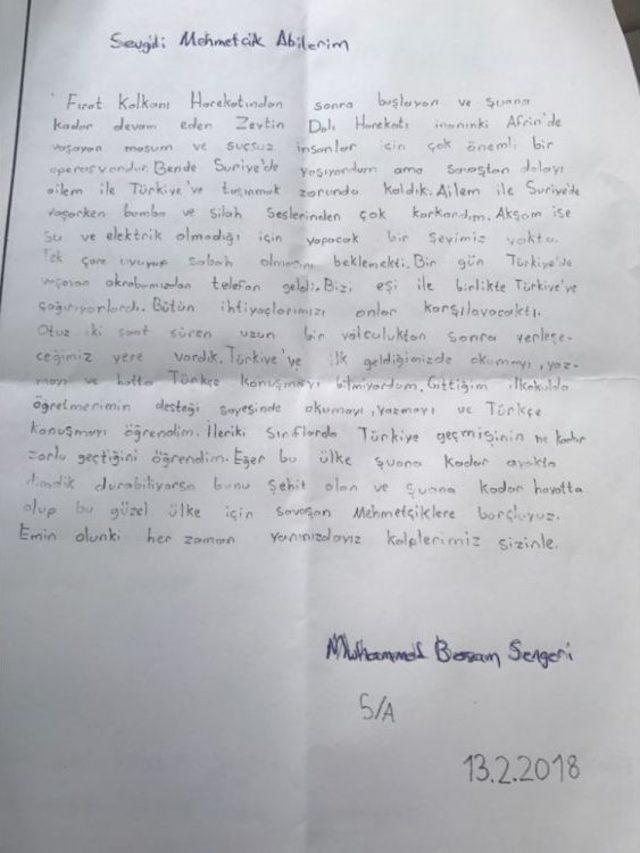 Sevgili Mehmetcik Abilerim
Fırat Kalkanı Harekatından sonra başlayan ve şuana
kadar devam eden Zeytin Dalı Harekatı inanınki Afrin'de
yaşayan masum ve suçsuz insanlar için çok önemli bir
operasyondur. Bende Suriye'de yaşıyordum ama savaştan dolayı
ailem ile Türkiye'ye taşınmak zorunda kaldık. Ailem ile Suriye'de
yaşarken bomba ve silah seslerinden çok korkardım. Akşam ise
su ve elektrik olmadığı için yapacak bir şeyimiz yoktu.
Tek çare uyuyup sabah olmasını beklemekti. Bir gün Türkiye'de
yaşayan akrabamızdan telefon geldi. Bizi eşi ile birlikte Türkiye'ye
çağırıyorlardı. Bütün ihtiyaçlarımızı onlar karşılayacaktı.
Otuz iki saat süren uzun bir yolculuktan sonra yerleşe-
ceğimiz yere vardık. Türkiye'ye ilk geldiğimizde okumayı, yaz-
mayı ve hatta Türkçe konuşmayı bilmiyordum. Gittiğim ilkokulda
öğretmerimin desteği sayesinde okumayı, yazmayı ve Türkçe
konuşmayı öğrendim. İleriki sınıflarda Türkiye geçmişinin ne kadar
zorlu geçtiğini öğrendim. Eğer bu ülke şuana kadar ayakta
dimdik durabiliyorsa bunu şehit olan ve şuana kadar hayatta
olup bu güzel ülke için savaşan Mehmetçiklere borçluyuz.
Emin olunki her zaman yanınızdayız kalplerimiz sizinle.
Muhammed Bessam Sengeri
5/A
13.2.2018